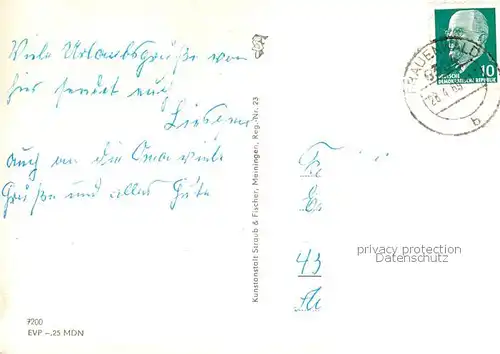 Viele Urlaubsgrüße von
hier sendet euch
auch an die Oma viele
Grüße und alles Gute
7200
EVP -.25 MDN
Kunstanstalt Straub & Fischer, Meiningen, Reg.-Nr. 23
FRAUENWALD
28.4.65
b
10
DEUTSCHE
DEMOKRATISCHE REPUBLIK
43
privacy protection
www.ansichtskarten-center.de